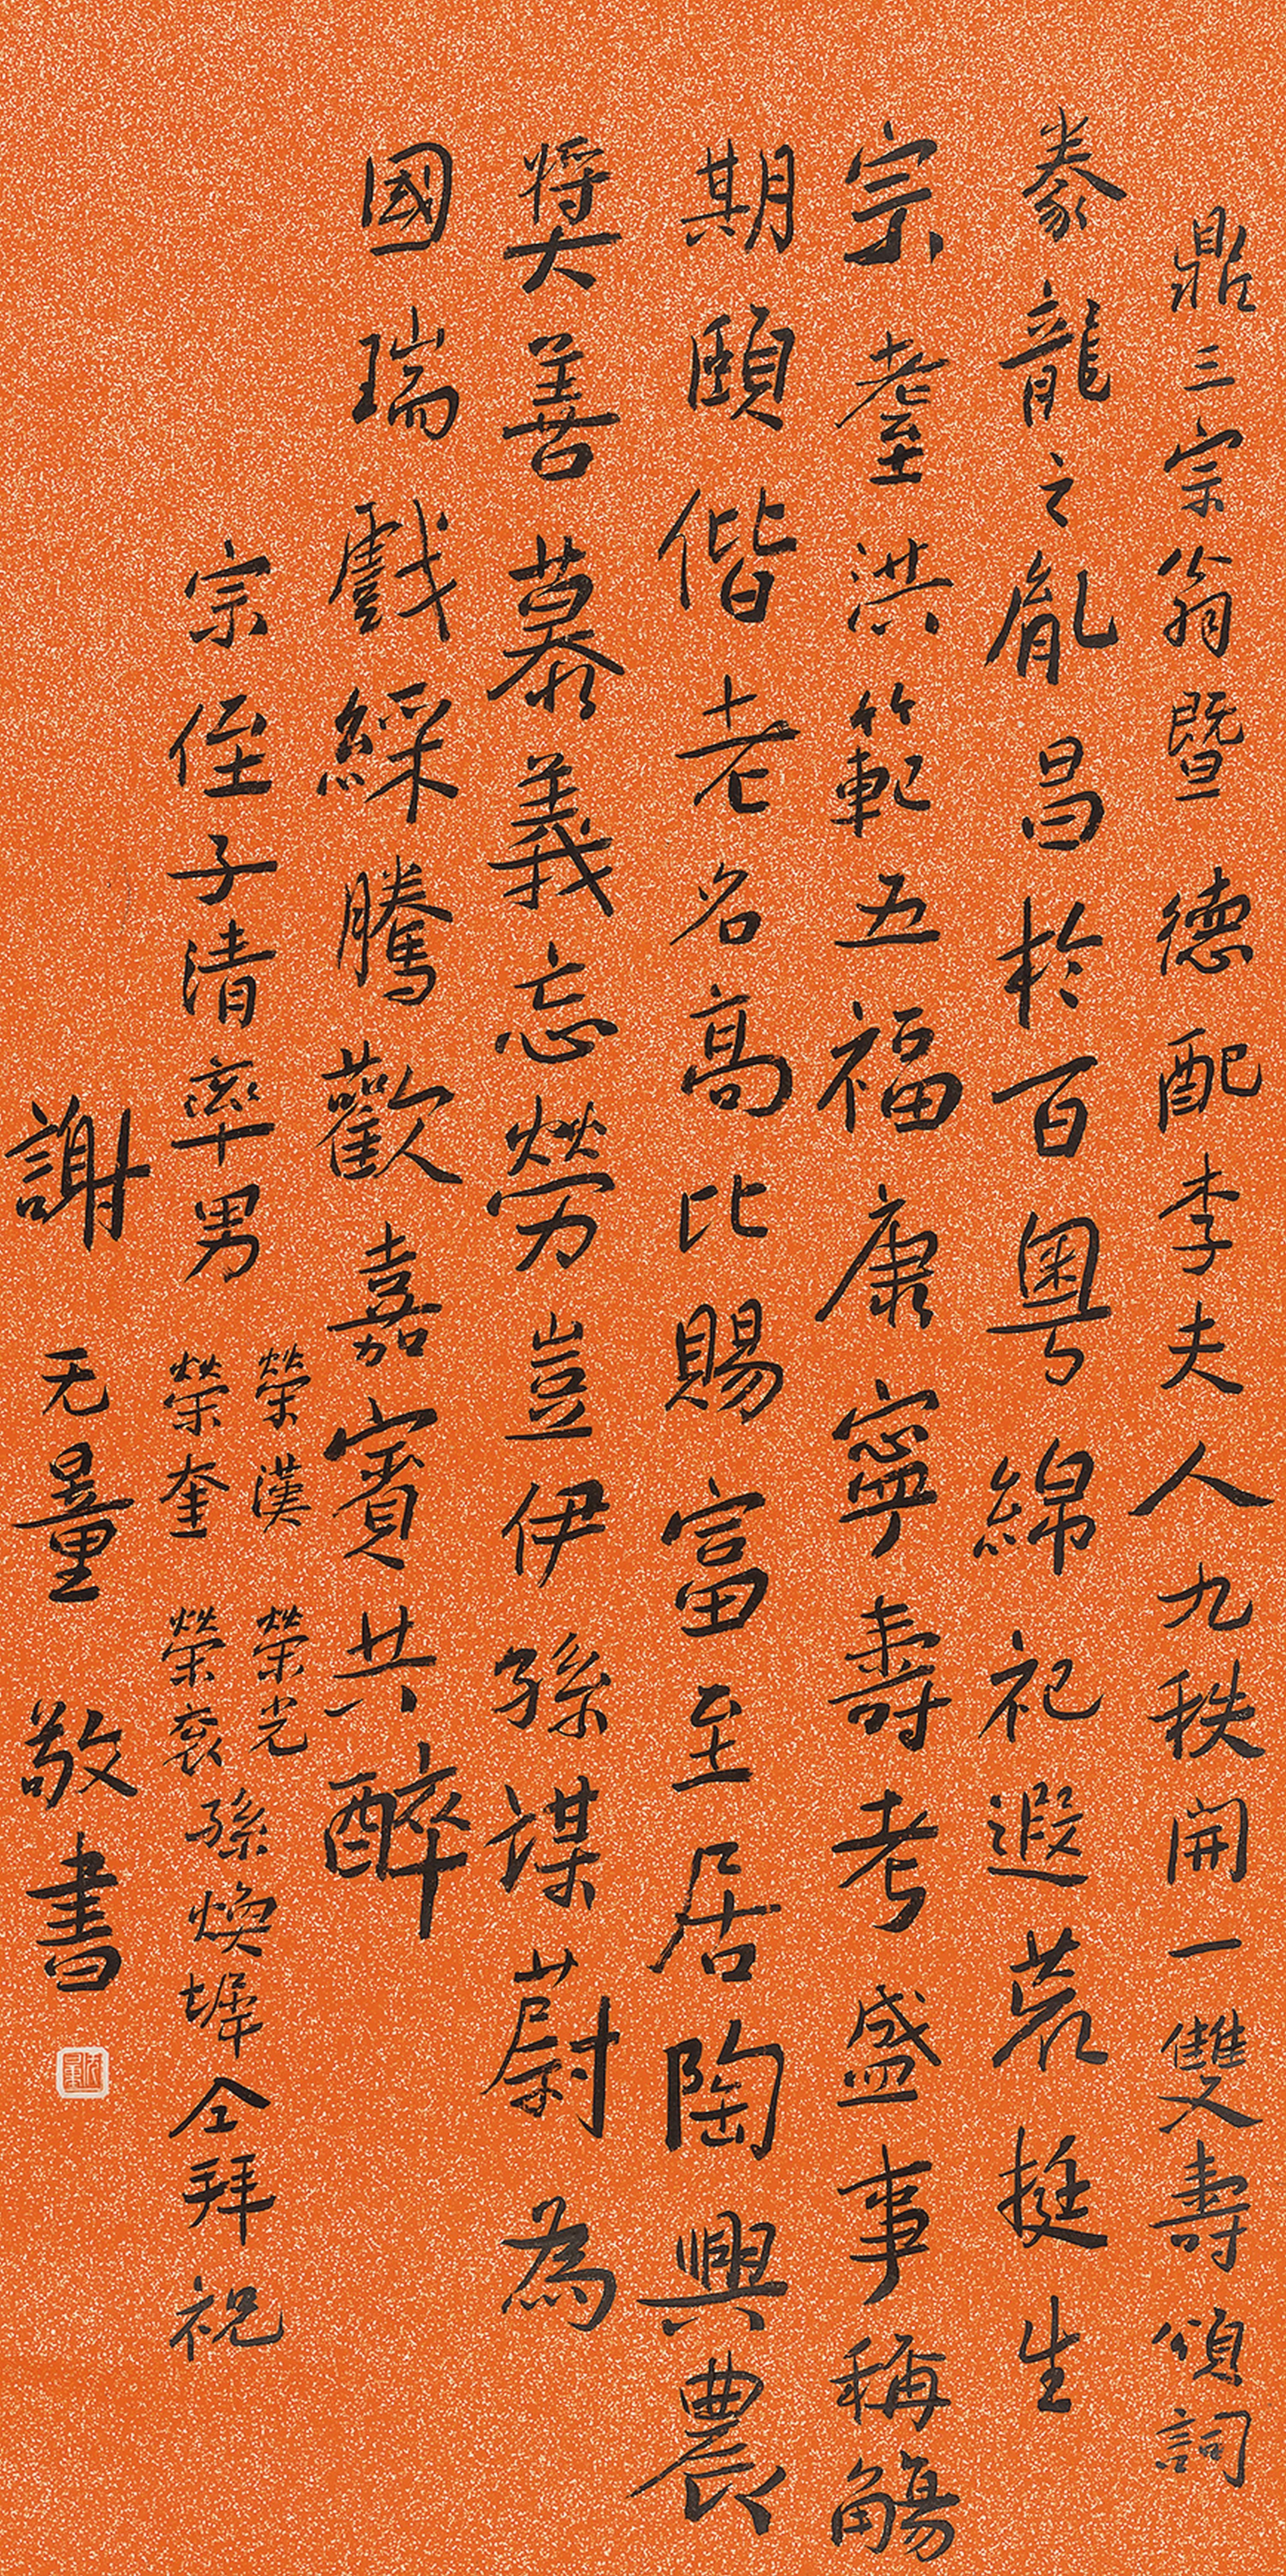 鼎三宗翁暨德配李夫人九秩開一雙壽頌詞
豢龍之胤昌於百粵綿祀遐荒挺生
宗耋洪範五福康寧壽考盛事稱觴
期頤偕老名高比賜富至居陶興農
獎善慕義忘勞豈伊孫謀蔚為
國瑞戲綵騰歡嘉賓共醉
宗侄子清率男
榮漢 榮光
榮奎 榮袞
孫煥墀仝拜祝
謝无量敬書
无量